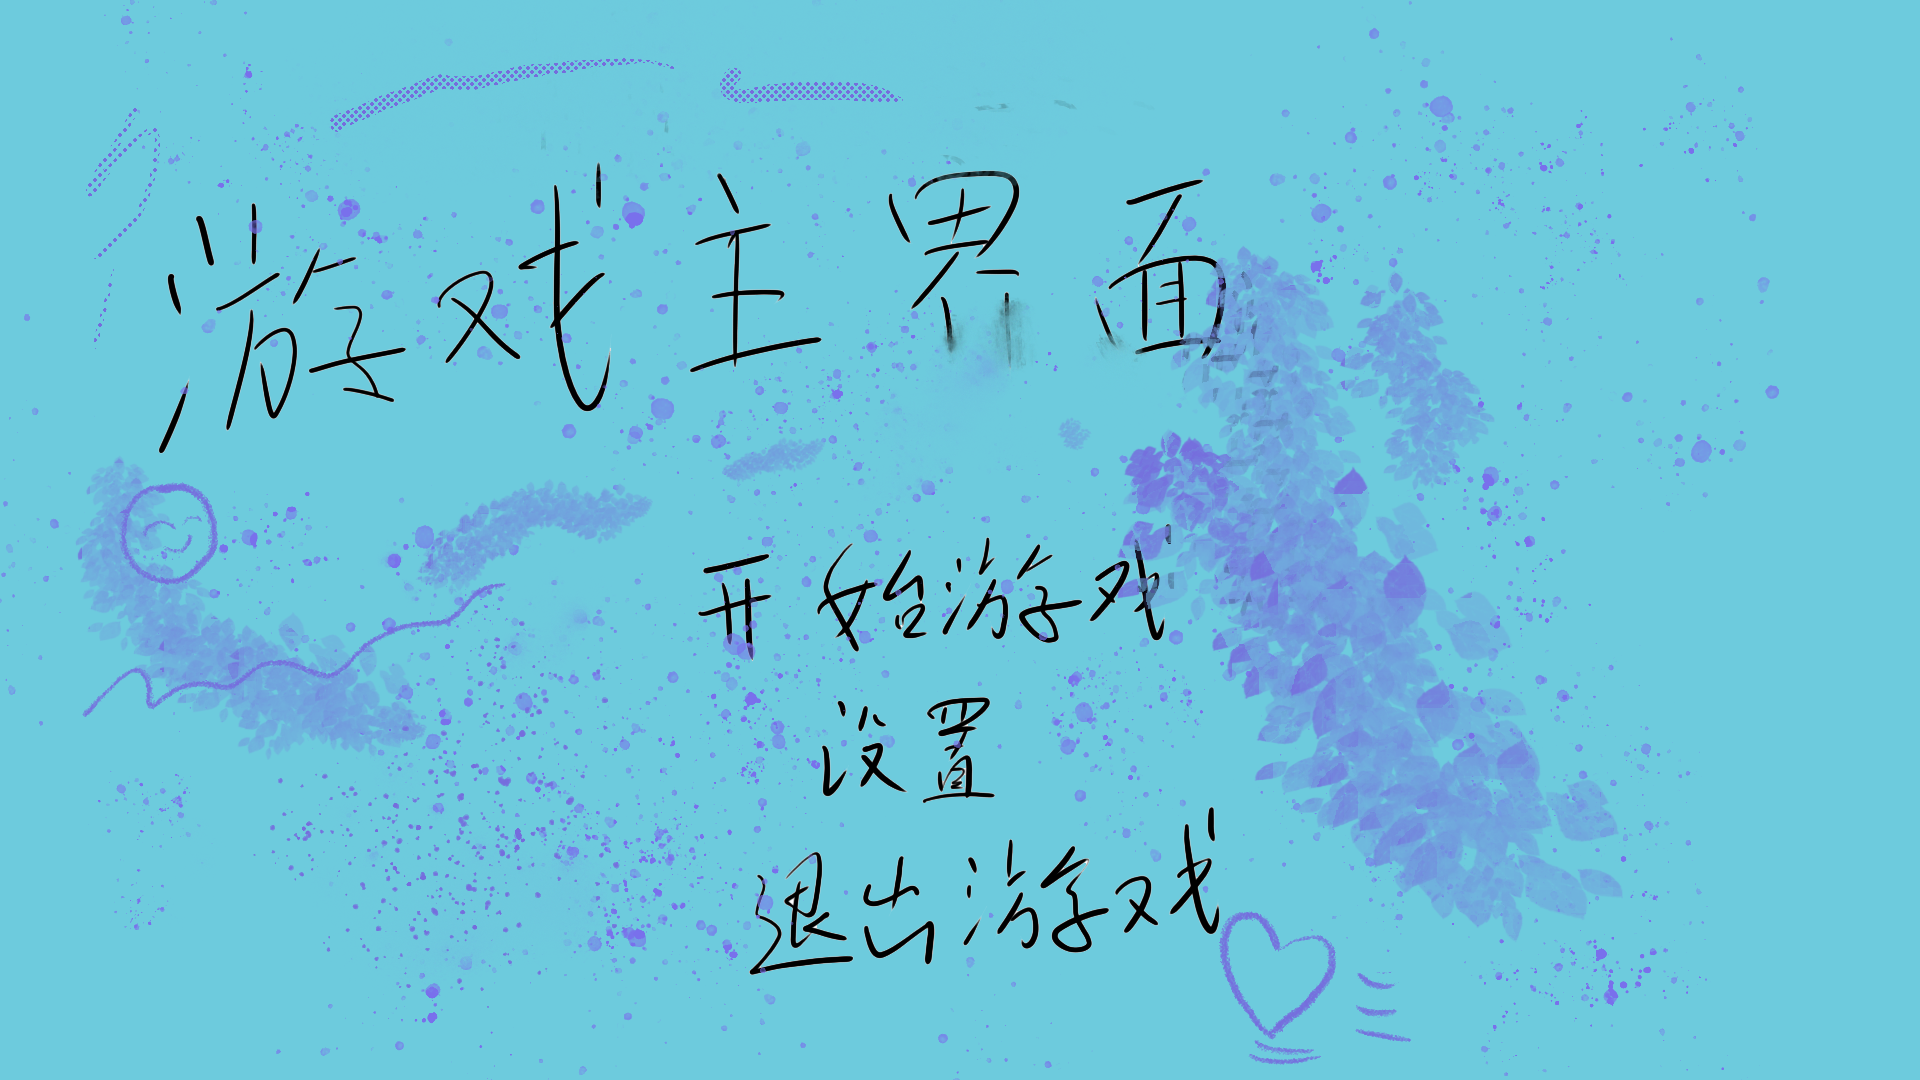 游戏主界面
开始游戏
设置
退出游戏